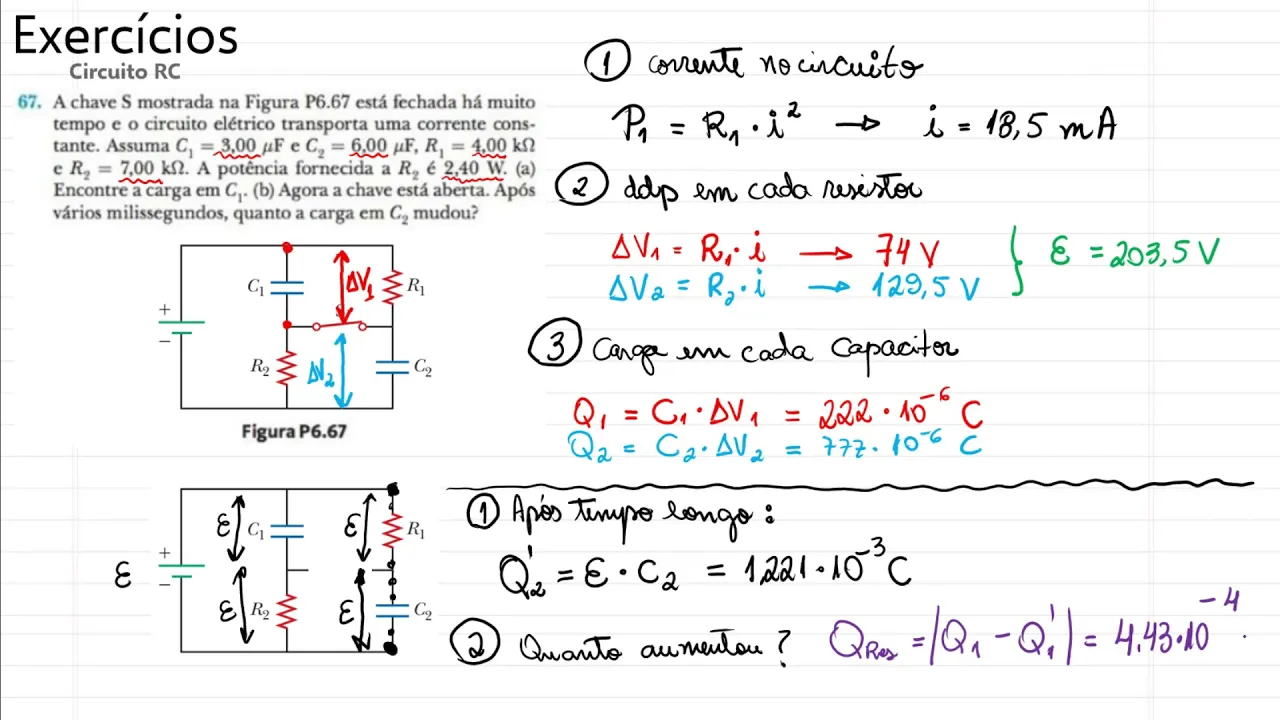 Exercícios
Circuito RC
67. A chave S mostrada na Figura P6.67 está fechada há muito
tempo e o circuito elétrico transporta uma corrente cons-
tante. Assuma C₁ = 3,00 μF e C₂ = 6,00 μF, R₁ = 4,00 kΩ
e R₂ = 7,00 kΩ. A potência fornecida a R₂ é 2,40 W. (a)
Encontre a carga em C₁. (b) Agora a chave está aberta. Após
vários milissegundos, quanto a carga em C₂ mudou?
+
−
C₁
ΔV₁
R₁
R₂
ΔV₂
C₂
Figura P6.67
ε
+
−
ε
C₁
ε
R₁
ε
R₂
ε
C₂
① corrente no circuito
P₁ = R₁ · i² → i = 18,5 mA
② ddp em cada resistor
ΔV₁ = R₁ · i → 74 V
ΔV₂ = R₂ · i → 129,5 V
} ε = 203,5 V
③ Carga em cada capacitor
Q₁ = C₁ · ΔV₁ = 222 · 10⁻⁶ C
Q₂ = C₂ · ΔV₂ = 777 · 10⁻⁶ C
① Após tempo longo :
Q₂' = ε · C₂ = 1,221 · 10⁻³ C
② Quanto aumentou ? Q_Res = |Q₁ − Q₁'| = 4,43 · 10⁻⁴ ·